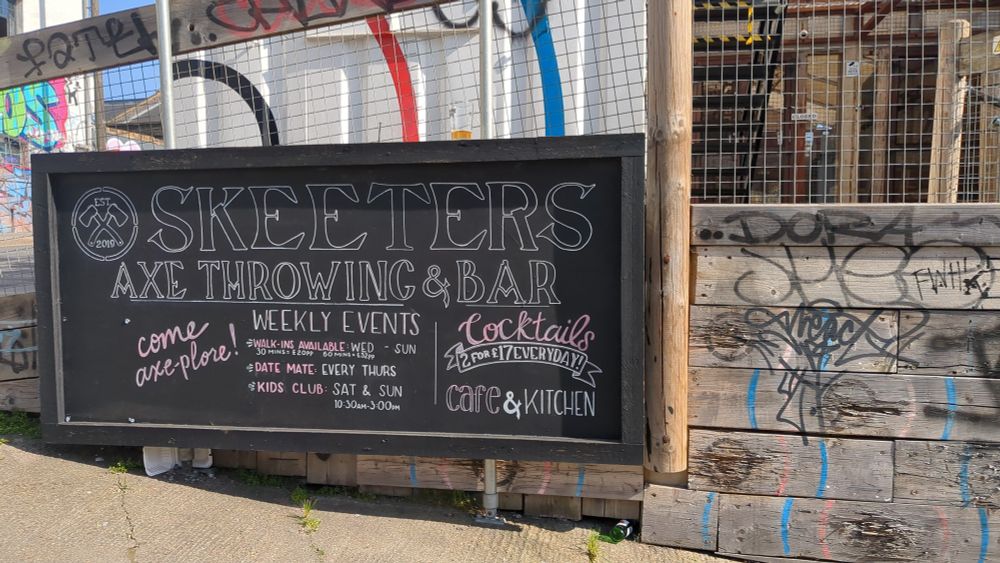 EST.
2019
SKEETERS
AXE THROWING & BAR
come
axe-plore!
WEEKLY EVENTS
WALK-INS AVAILABLE: WED - SUN
30 MINS = £20PP 60 MINS = £32PP
DATE MATE: EVERY THURS
KIDS CLUB: SAT & SUN
10:30AM-3:00PM
Cocktails
2 FOR £17 EVERYDAY!
cafe & KITCHEN
CLOSED
DORA